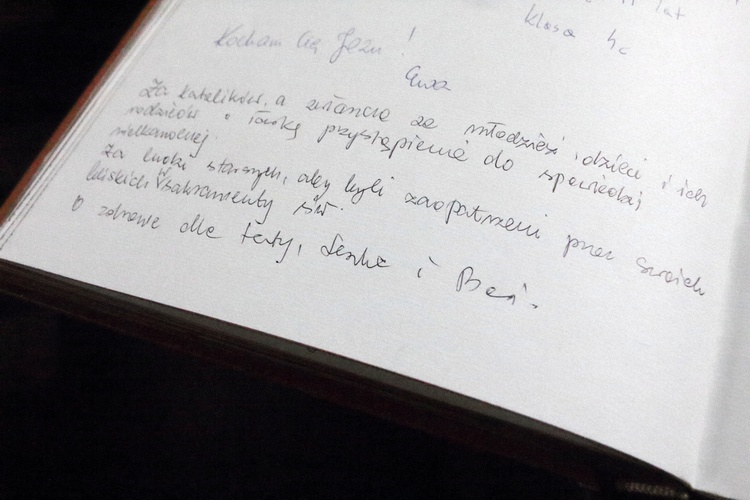 11 lat
klasa 4c
Kocham Cię Jezu !
Ewa
Za katolików, a zwłaszcza za młodzież, dzieci i ich
rodziców o łaskę przystąpienia do spowiedzi
wielkanocnej.
Za ludzi starszych, aby byli zaopatrzeni przez swoich
bliskich w sakramenty św.
O zdrowie dla Teresy, Leszka i Basi.